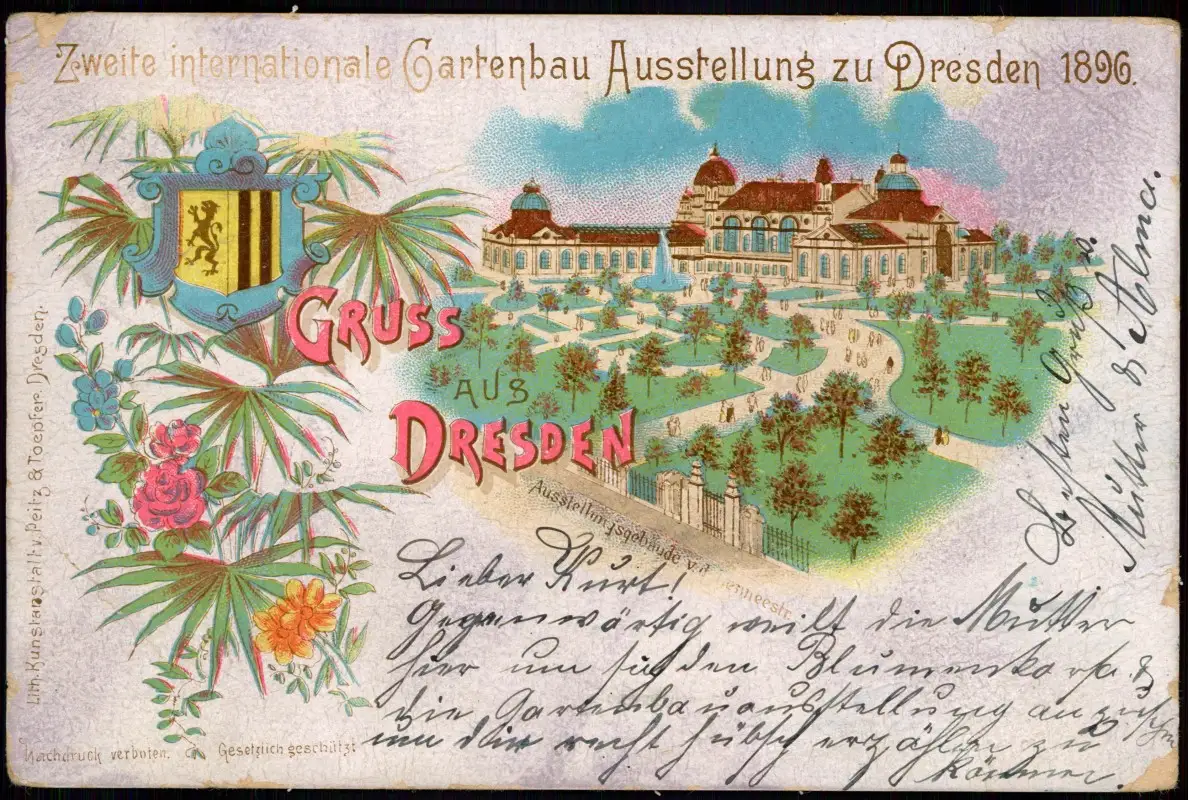 Zweite internationale Gartenbau Ausstellung zu Dresden 1896.
GRUSS
AUS
DRESDEN
Ausstellungsgebäude v.d. enneestr.
Lieber Kurt!
Gegenwärtig weilt die Mutter
hier um sich den Blumenkorso &
die Gartenbauausstellung anzusehen
um dir recht hübsch erzählen zu
können.
Besten Gruß v.
Mutter & Alma.
Lith. Kunstanstalt v. Peitz & Toepfer, Dresden.
Nachdruck verboten. Gesetzlich geschützt